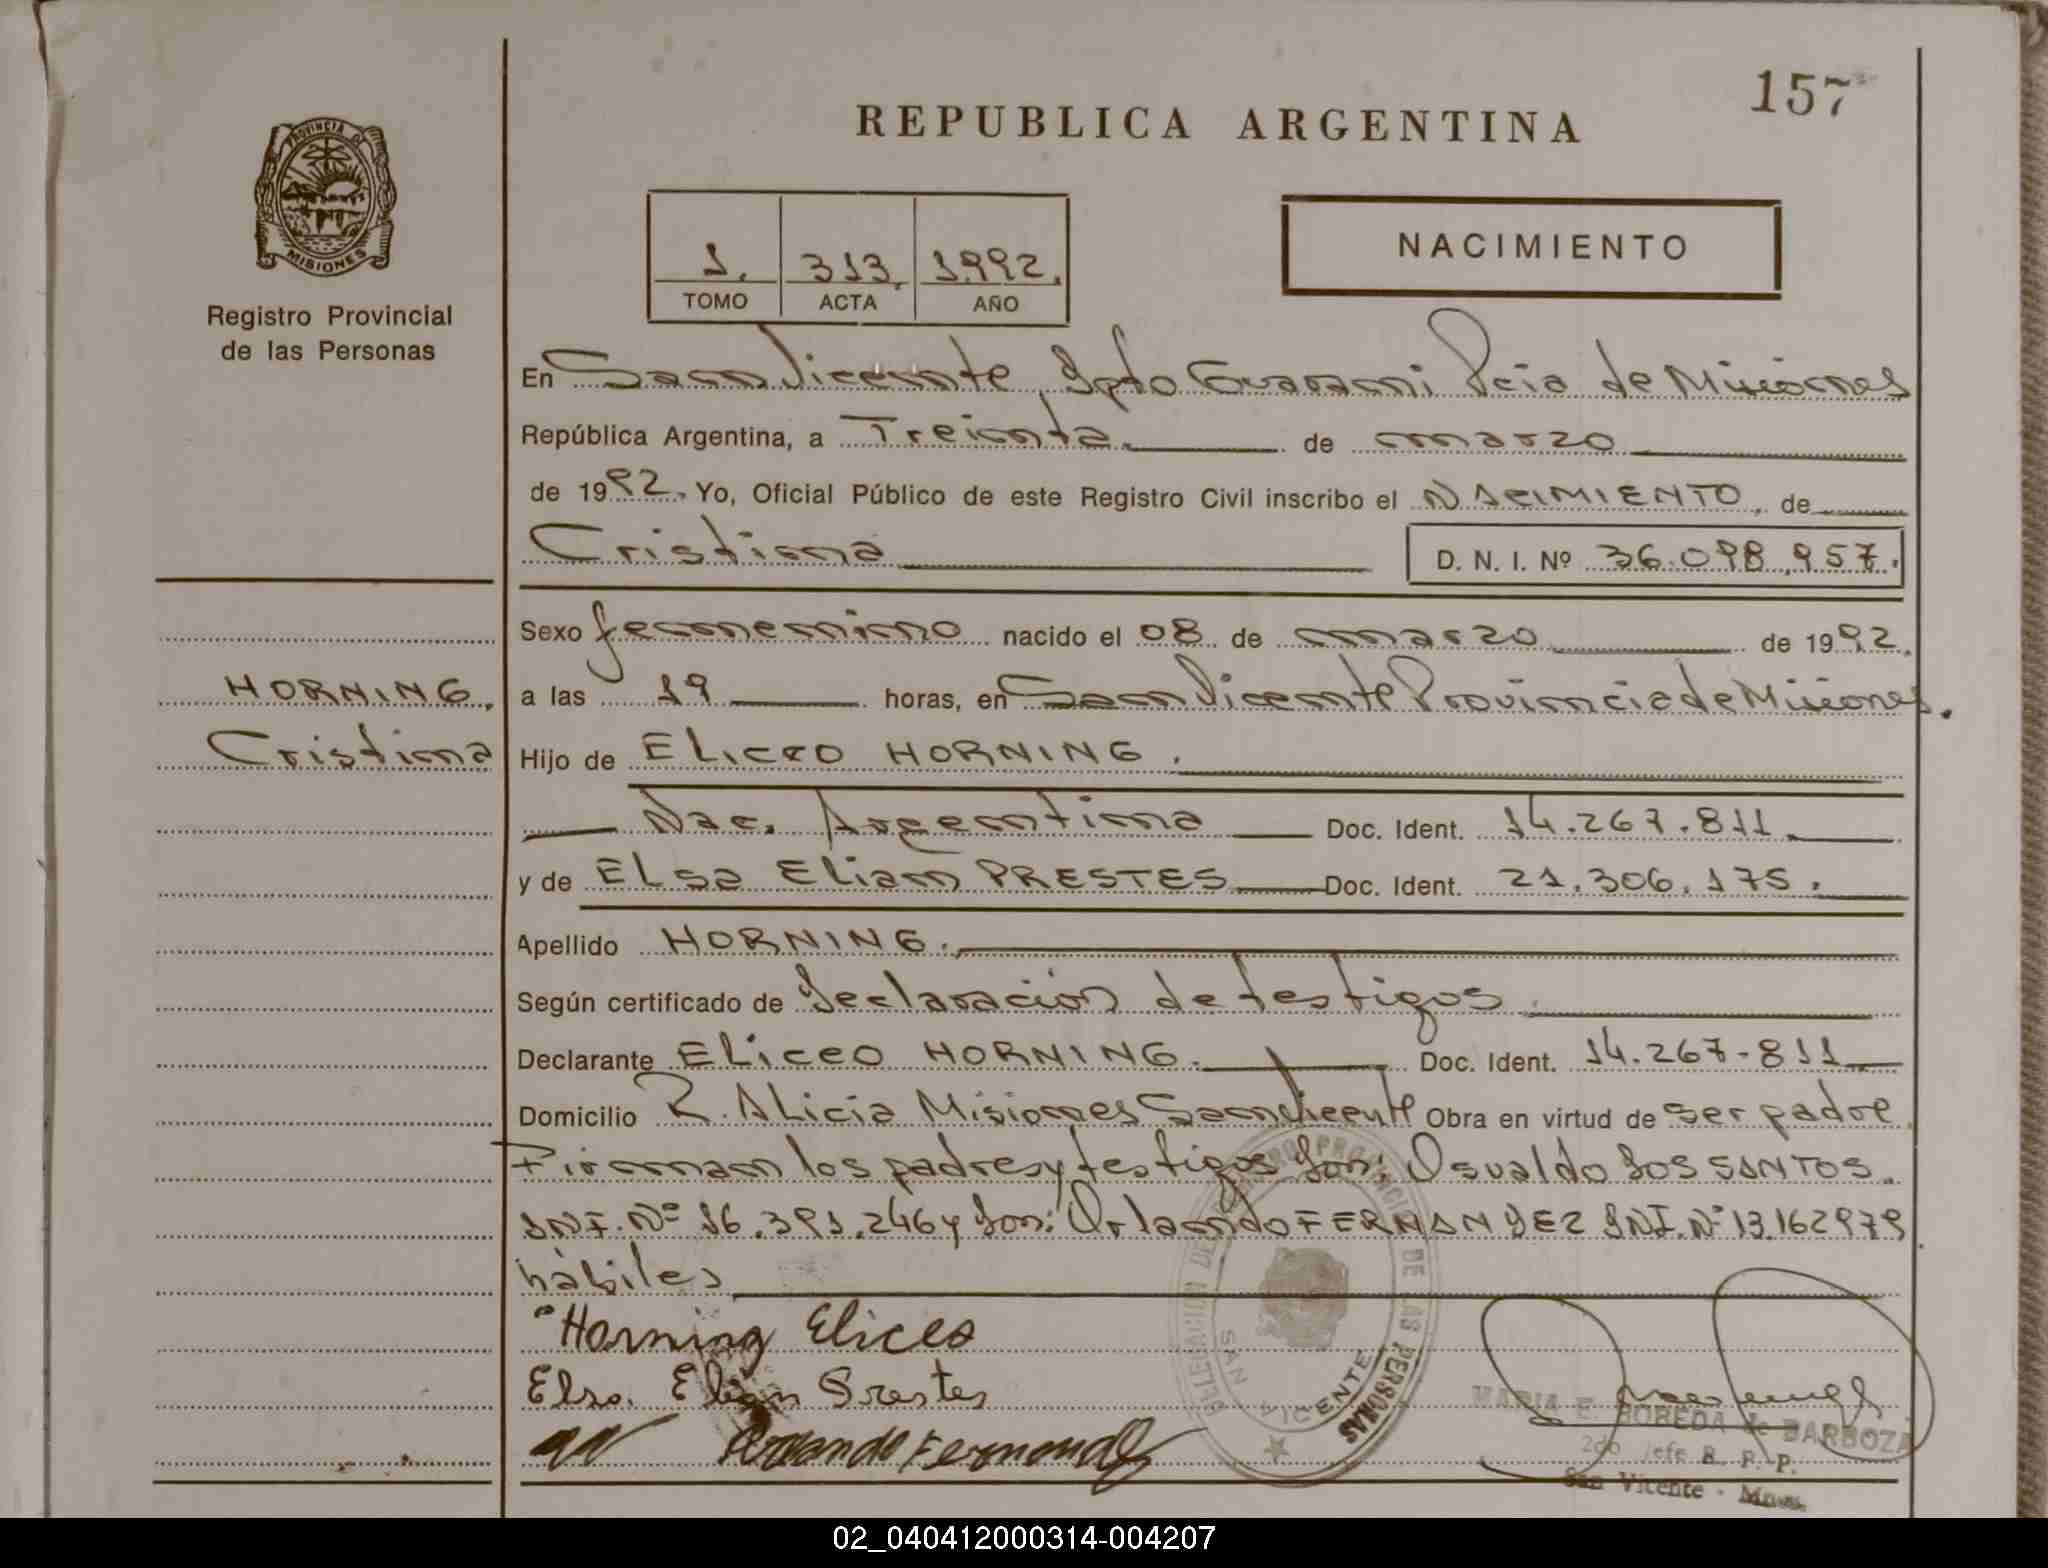 157
REPUBLICA ARGENTINA
PROVINCIA DE
MISIONES
Registro Provincial
de las Personas
1. 313. 1992.
TOMO ACTA AÑO
NACIMIENTO
En San Vicente, Dpto Guarani Pcia de Misiones
República Argentina, a Treinta. de marzo
de 1992. Yo, Oficial Público de este Registro Civil inscribo el NACIMIENTO, de
Cristina D. N. I. Nº 36.098.957.
Sexo femenino nacido el 08 de marzo de 1992.
HORNING,
Cristina
a las 19 horas, en San Vicente Provincia de Misiones.
Hijo de ELICEO HORNING.
Nac. Argentina Doc. Ident. 14.267.811.
y de ELsa ELian PRESTES Doc. Ident. 21.306.175.
Apellido HORNING.
Según certificado de Declaración de testigos
Declarante ELiceo HORNING. Doc. Ident. 14.267-811
Domicilio R. ALicia Misiones San Vicente Obra en virtud de ser padre
Firman los padres y testigos Don: Osvaldo Dos SANTOS.
DNI. Nº 16.391.246 y Don: Orlando FERNANDEZ DNI. Nº 13.162979
hábiles
Horning Eliceo
Elsa. Elian Prestes
Orlando Fernandez
DELEGACION DEL REGISTRO PROVINCIAL DE LAS PERSONAS
SAN VICENTE
MARIA E. BOBEDA de BARBOZA
2do Jefe R. P. P.
San Vicente - Mnes.
02_040412000314-004207